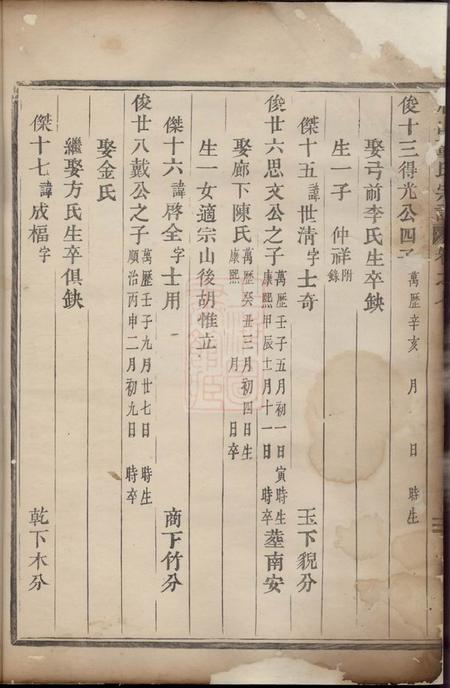 俊十三得光公四子 萬歷辛亥 月 日 時生
娶弓前李氏生卒缺
生一子 仲祥附錄
傑十五諱世淸字士奇 玉下貌分
俊廿六思文公之子萬歷壬子五月初一日寅時生康熙甲辰十一月十一日 時卒塟南安
娶廊下陳氏萬歷癸丑三月初四日生康熙 月 日卒
生一女適宗山後胡惟立
傑十六諱啓全字士用 商下竹分
俊廿八戴公之子萬歷壬子九月廿七日 時生順治丙申二月初九日 時卒
娶金氏
繼娶方氏生卒俱缺
傑十七諱成楅字 乾下木分